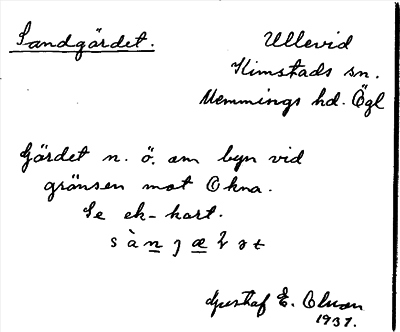 Sandgärdet.
Ullevid
Kimstads sn.
Memmings hd. Ögl
Gärdet n. ö. om byn vid
gränsen mot Okna.
Se ek-kart.
Gustaf E. Olsson
1931.